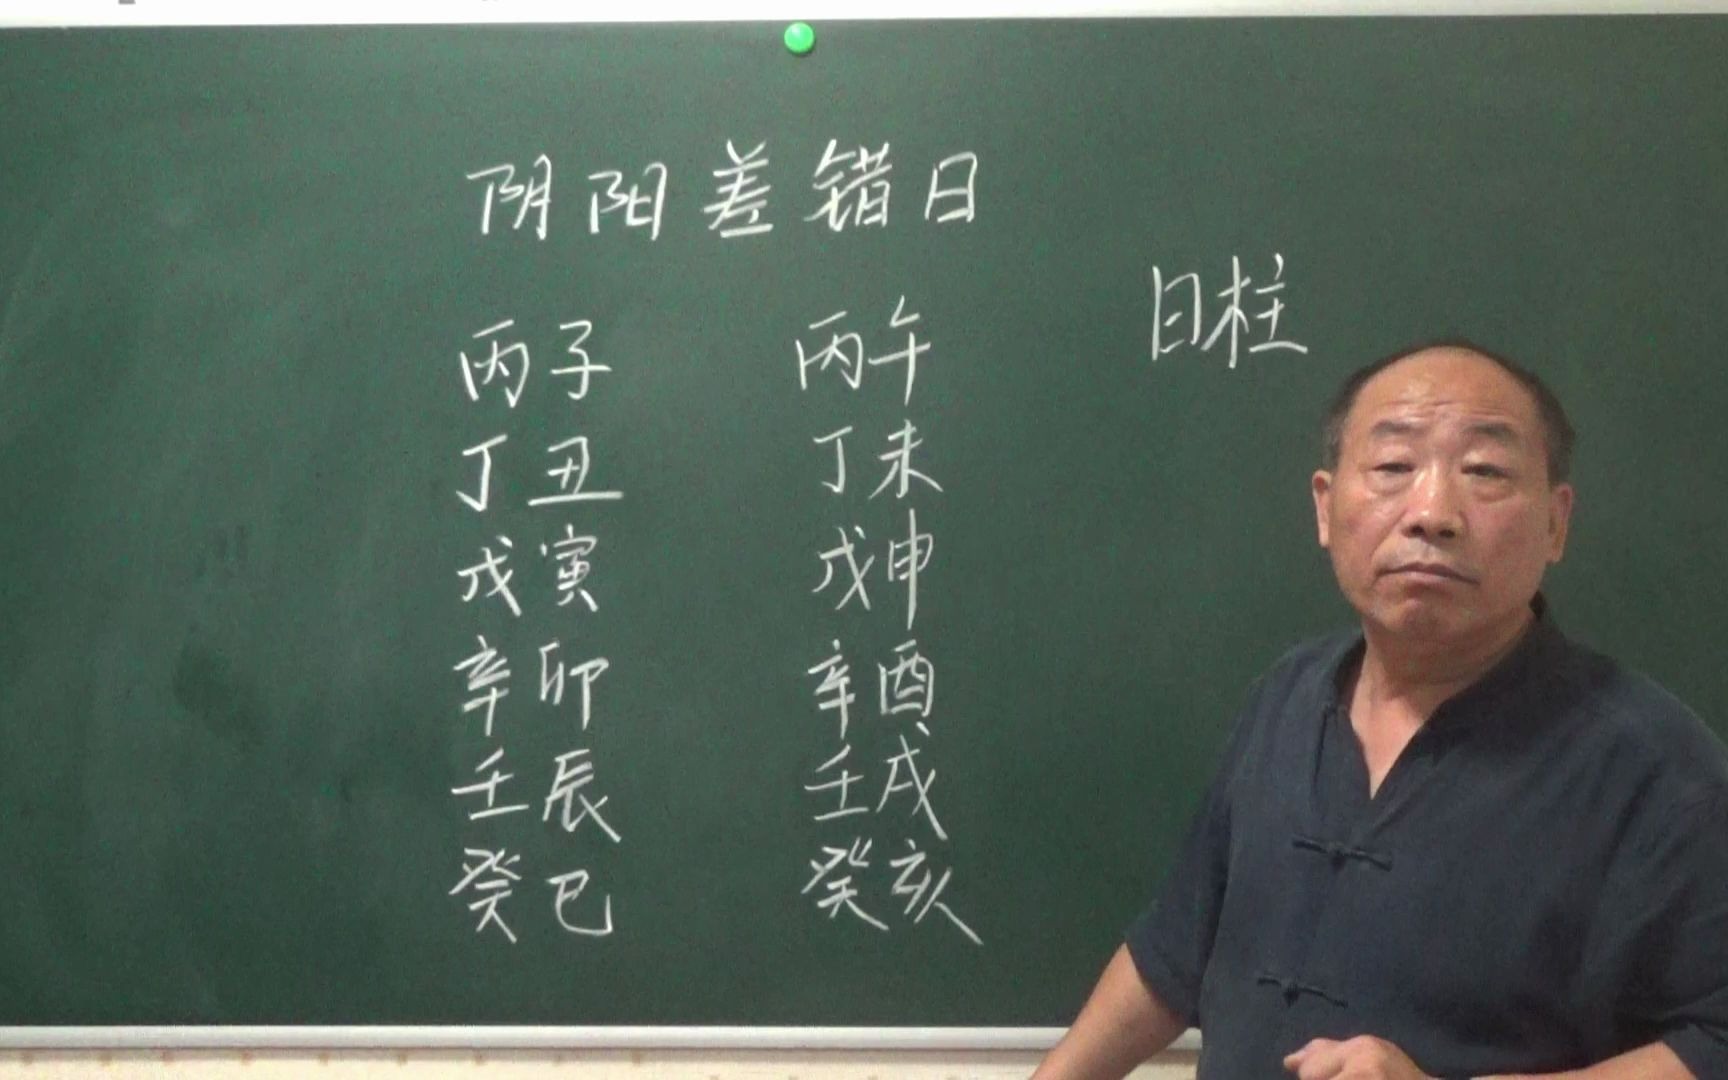 阴阳差错日
日柱
丙子 丙午
丁丑 丁未
戊寅 戊申
辛卯 辛酉
壬辰 壬戌
癸巳 癸亥